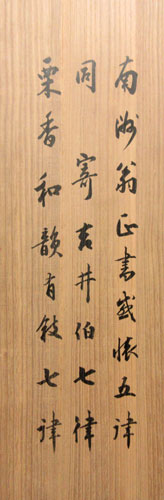 南洲翁正書感懐五律
同　寄吉井伯七律
栗香和韻有敍七律